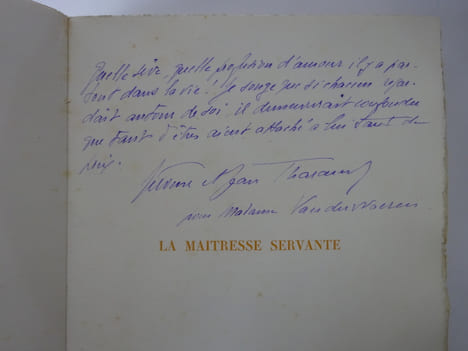 Quelle sève, quelle profusion d'amour il y a par-
tout dans la vie ! Je songe que si chacun regar-
dait autour de soi, il demeurerait confondu
que tant d'êtres aient attaché à lui tant de
prix.
Jérôme et Jean Tharaud
pour Madame Vanderwaeren
LA MAITRESSE SERVANTE